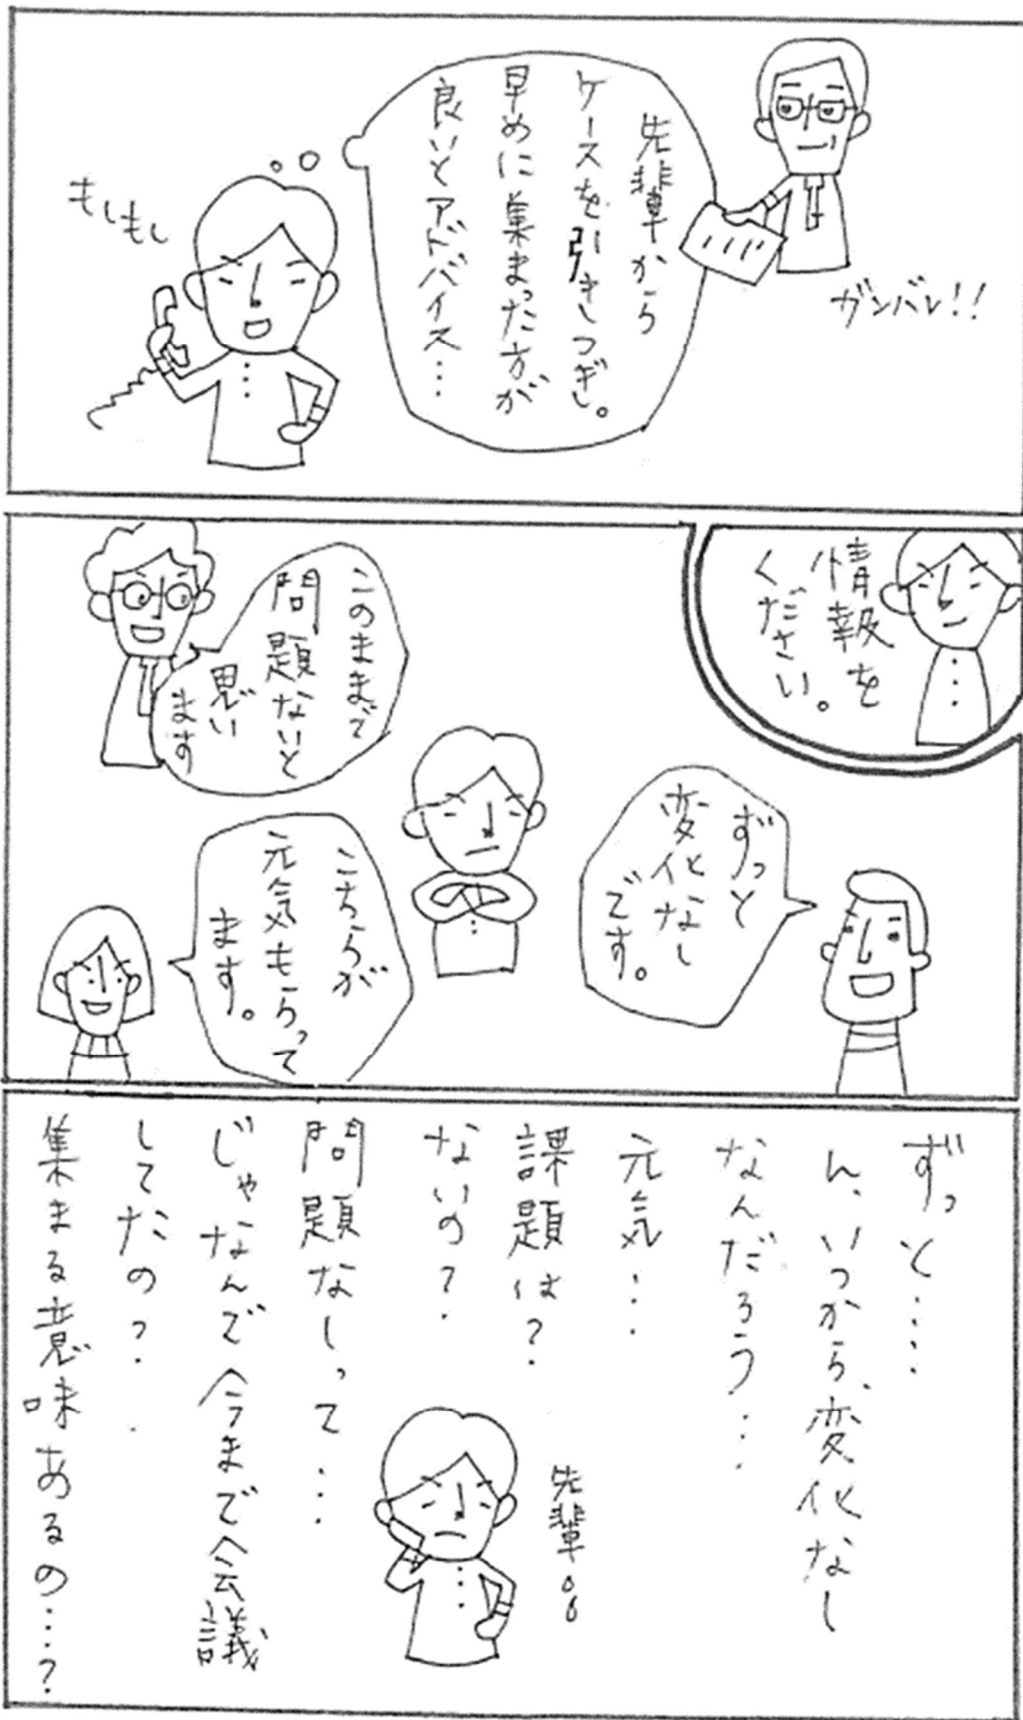 先輩から
ケースを引きつぎ。
早めに集まった方が
良いとアドバイス…
ガンバレ!!
もしもし
情報を
ください。
ずっと
変化なし
です。
このままで
問題ないと
思い
ます
こちらが
元気もらって
ます。
ずっと……
ん、いつから、変化なし
なんだろう…
元気…
課題は?
ないの?
問題なしって…
じゃなんで今まで会議
してたの?
集まる意味あるの…?
先輩。。